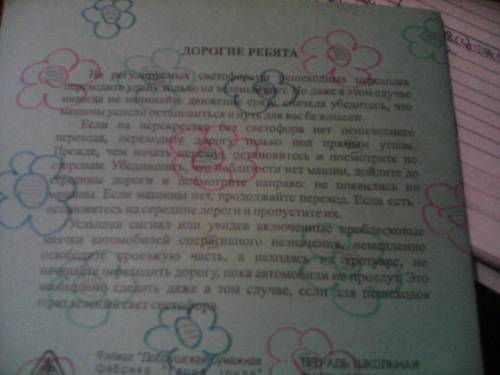 ДОРОГИЕ РЕБЯТА
На регулируемых светофорами пешеходных переходах
переходить улицу только на зеленый свет. Но даже в этом случае
никогда не начинайте движение сразу, сначала убедитесь, что
машины успели остановиться и путь для вас безопасен.
Если на перекрестке без светофора нет пешеходного
перехода, переходите дорогу только под прямым углом.
Прежде, чем начать переход, остановитесь и посмотрите по
сторонам. Убедившись, что поблизости нет машин, дойдите до
середины дороги и посмотрите направо: не появились ли
машины. Если машины нет, продолжайте переход. Если есть -
остановитесь на середине дороги и пропустите их.
Услышав сигнал или увидев включенные проблесковые
маячки автомобилей оперативного назначения, немедленно
освободите проезжую часть, а находясь на тротуаре, не
начинайте переходить дорогу, пока автомобили не проедут. Это
необходимо сделать даже в том случае, если для пешеходов
горит зеленый свет светофора.
Филиал "Добрушская бумажная
фабрика "Герой труда"
ТЕТРАДЬ ШКОЛЬНАЯ